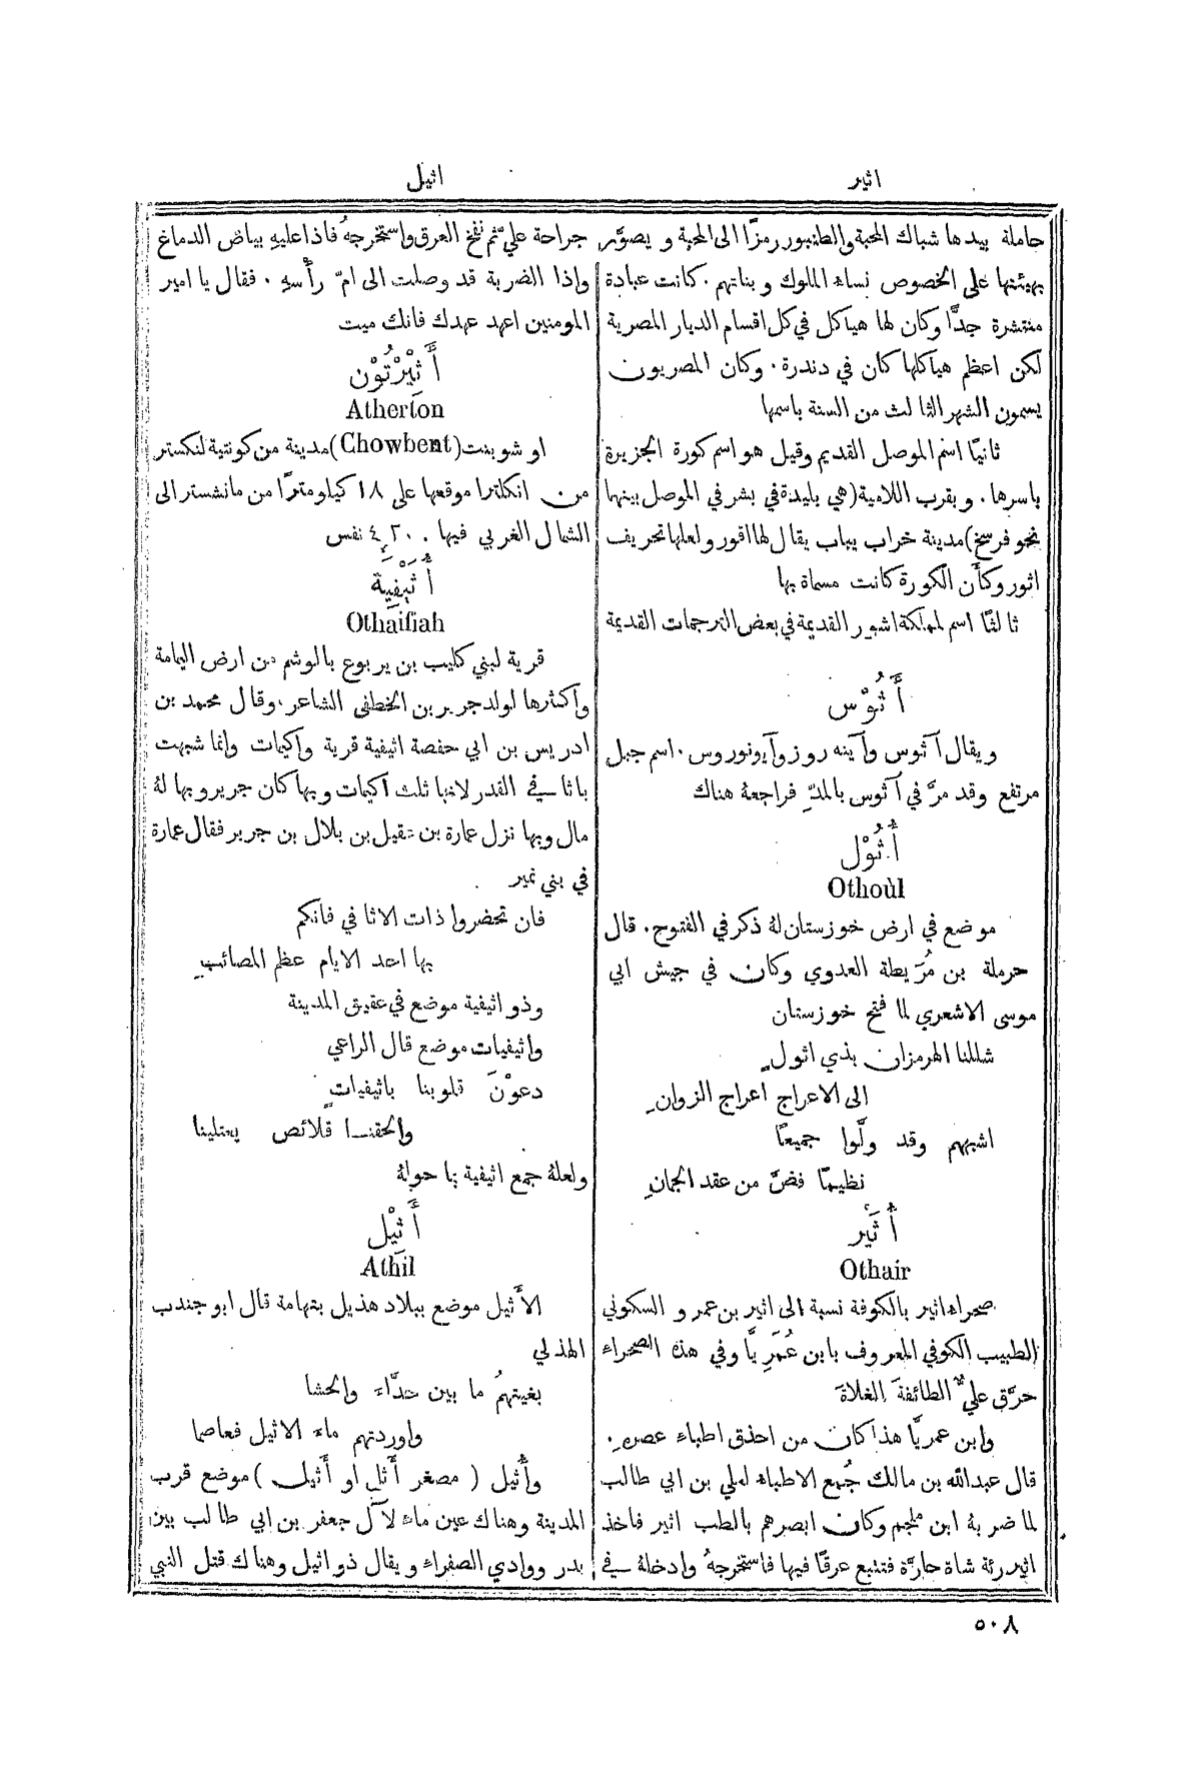 اثير
اثيل
حاملة بيدها شباك المحبة والطنبور رمزًا الى المحبة ويصوَّر
بهيئتها على الخصوص نساء الملوك وبناتهم. كانت عبادة
منتشرة جدًّا وكان لها هياكل في كل اقسام الديار المصرية
لكن اعظم هياكلها كان في دندرة. وكان المصريون
يسمون الشهر الثالث من السنة باسمها
ثانيًا اسم الموصل القديم وقيل هو اسم كورة الجزيرة
باسرها. وبقرب اللامية (هي بليدة في بشر في الموصل بينهما
نحو فرسخ) مدينة خراب يباب يقال لها اقور ولعلها تحريف
اثور وكأن الكورة كانت مسماة بها
ثالثًا اسم لمملكة اشور القديمة في بعض الترجمات القديمة
أَثُوْس
ويقال آثوس وآينه روز وآيونوروس. اسم جبل
مرتفع وقد مرَّ في آثوس بالمدِّ فراجعهُ هناك
أُثُوْل
Othoùl
موضع في ارض خوزستان لهُ ذكر في الفتوح. قال
حرملة بن مُرَيطة العدوي وكان في جيش ابي
موسى الاشعري لما فتح خوزستان
شللنا الهرمزان بذي اثولٍ
الى الاعراج اعراج الزوانِ
اشبههم وقد ولَّوا جميعًا
نظيمًا فضَّ من عقد الجمانِ
أُثَير
Othair
صحراء اثير بالكوفة نسبة الى اثير بن عمرو السكوني
الطبيب الكوفي المعروف بابن عُمَرِيَّا وفي هذه الصحراء
حرَّق عليٌّ الطائفةَ الغلاةَ
وابن عمريَّا هذا كان من احذق اطباء عصرهِ.
قال عبدالله بن مالك جُمع الاطباء لعلي بن ابي طالب
لما ضربهُ ابن ملجم وكان ابصرهم بالطب اثير فاخذ
اثير رئة شاة حارَّة فتتبع عرقًا فيها فاستخرجهُ وادخلهُ في
جراحة عليٍّ ثم نفخ العرق واستخرجهُ فاذا عليهِ بياض الدماغ
واذا الضربة قد وصلت الى امّ رأسهِ. فقال يا امير
المومنين اعهد عهدك فانك ميت
أَثِيْرْتُوْن
Atherton
او شوبنت (Chowbent) مدينة من كونتية لنكستر
من انكلترا موقعها على ١٨ كيلومترًا من مانشستر الى
الشمال الغربي فيها نفس
أُثَيْفِيَة
Othaifiah
قرية لبني كليب بن يربوع بالوشم من ارض اليمامة
واكثرها لولد جرير بن الخطفى الشاعر. وقال محمد بن
ادريس بن ابي حفصة اثيفية قرية واكيمات وانما شبهت
باثافي القدر لانها ثلث اكيمات وبها كان جرير وبها لهُ
مال وبها نزل عمارة بن عقيل بن بلال بن جرير فقال عمارة
في بني نمير
فان تحضروا ذات الاثافي فانكم
بها احد الايام عظم المصائبِ
وذو اثيفية موضع في عقيق المدينة
واثيفيات موضع قال الراعي
دعوْنَ قلوبنا باثيفياتٍ
والحقنا قلائص يعتلينا
ولعلهُ جمع اثيفية بما حولهُ
أَثِيْل
Athil
الأَثيل موضع ببلاد هذيل بتهامة قال ابو جندب
الهذلي
بغيتهمُ ما بين حدَّاء والحشا
واوردتهم ماء الاثيل فعاصما
وأُثيل (مصغر أَثل او أَثيل) موضع قرب
المدينة وهناك عين ماء لآل جعفر بن ابي طالب بين
بدر ووادي الصفراء ويقال ذو اثيل وهناك قتل النبي
٥٠٨